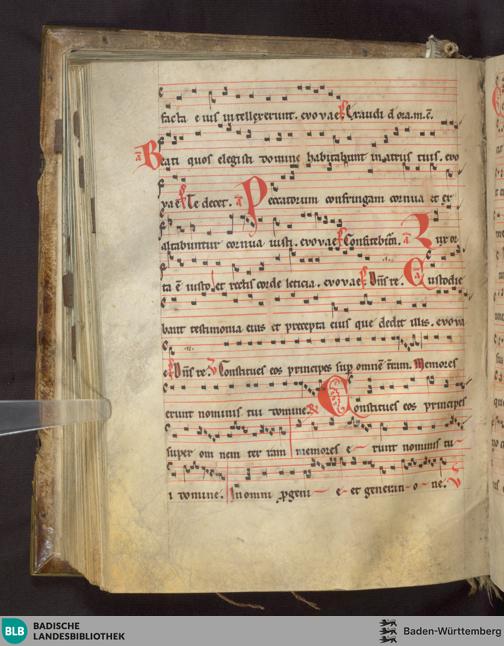 facta eius intellexerunt. evovae. Exaudi d ora.m.
Beati quos elegisti domine habitabunt in atriis tuis. evo
vae. Te decet. Peccatorum confringam cornua et ex
altabuntur cornua iusti. evovae. Confitebim. Lux or
ta e iusto et rectis corde leticia. evovae. Dns re. Custodie
bant testimonia eius et precepta eius que dedit illis. evova
e. Dns re. Constitues eos principes sup omnē tram. Memores
erunt nominis tui domine. Constitues eos principes
super om nem ter ram memores e runt nominis tu
i domine. In omni pgeni e et generati o ne.
BLB BADISCHE
LANDESBIBLIOTHEK
Baden-Württemberg